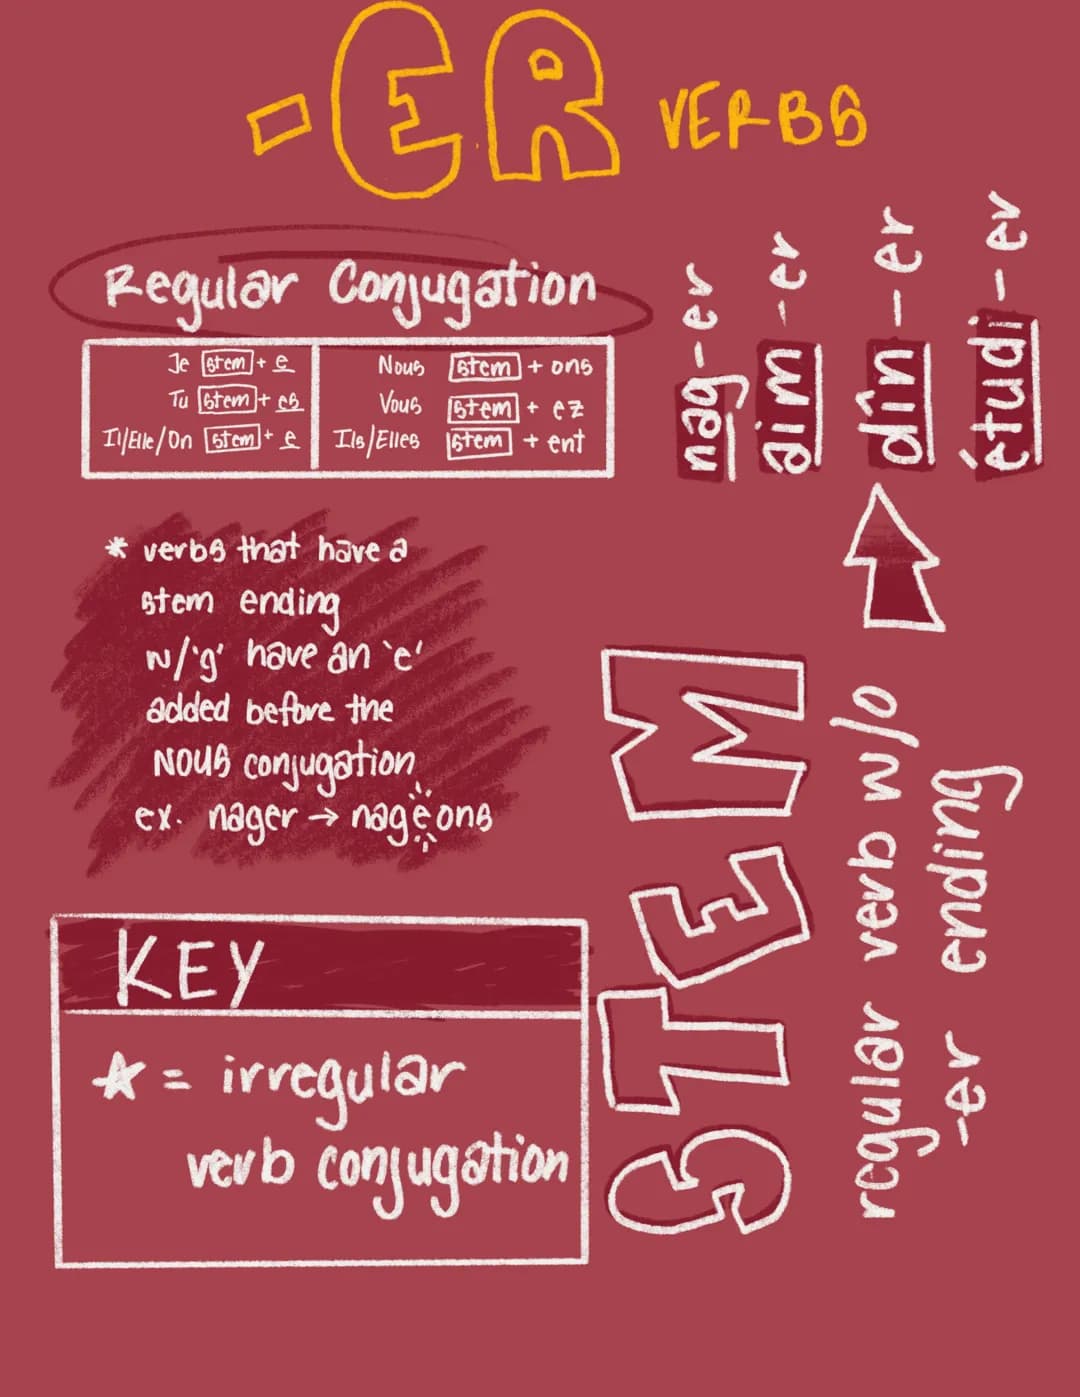 -ER VERBS
Regular Conjugation
Je stem + e
Tu stem + es
Il/Elle/On stem + e
Nous stem + ons
Vous stem + ez
Ils/Elles stem + ent
nag-er
aim-er
dîn-er
étudi-er
* verbs that have a
stem ending
w/'g' have an 'e'
added before the
NOUS conjugation
ex. nager → nageons
STEM
regular verb w/o
-er ending
KEY
☆ = irregular
verb conjugation